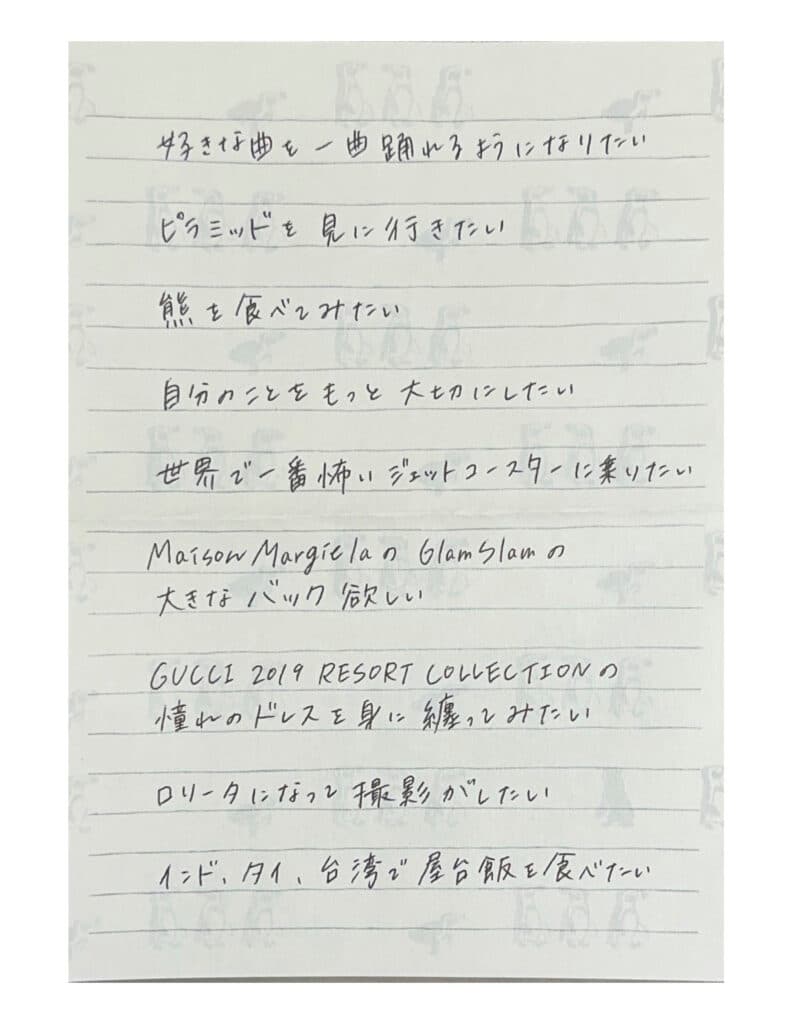 好きな曲を一曲踊れるようになりたい
ピラミッドを見に行きたい
熊を食べてみたい
自分のことをもっと大切にしたい
世界で一番怖いジェットコースターに乗りたい
Maison Margielaの Glam Slamの
大きなバック欲しい
GUCCI 2019 RESORT COLLECTIONの
憧れのドレスを身に纏ってみたい
ロリータになって撮影がしたい
インド、タイ、台湾で屋台飯を食べたい